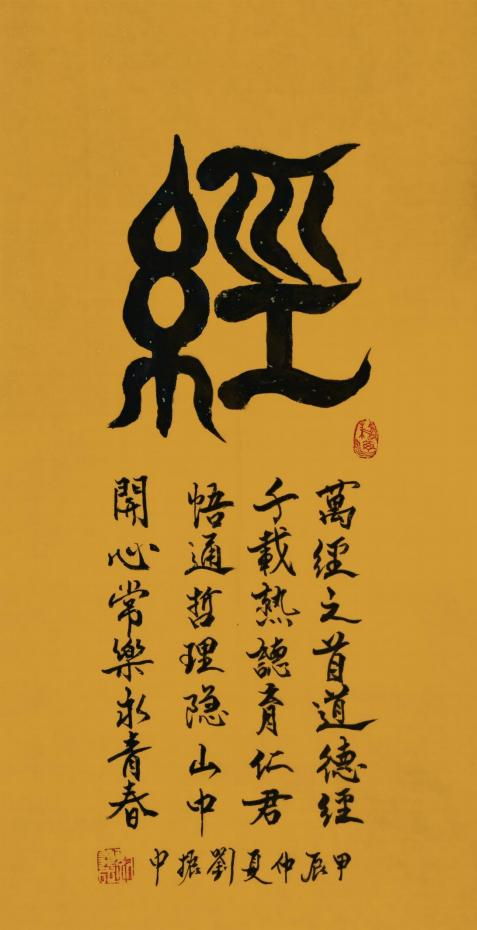 經
萬經之首道德經
千載熟讀育仁君
悟通哲理隐山中
開心常樂永青春
甲辰仲夏劉振中